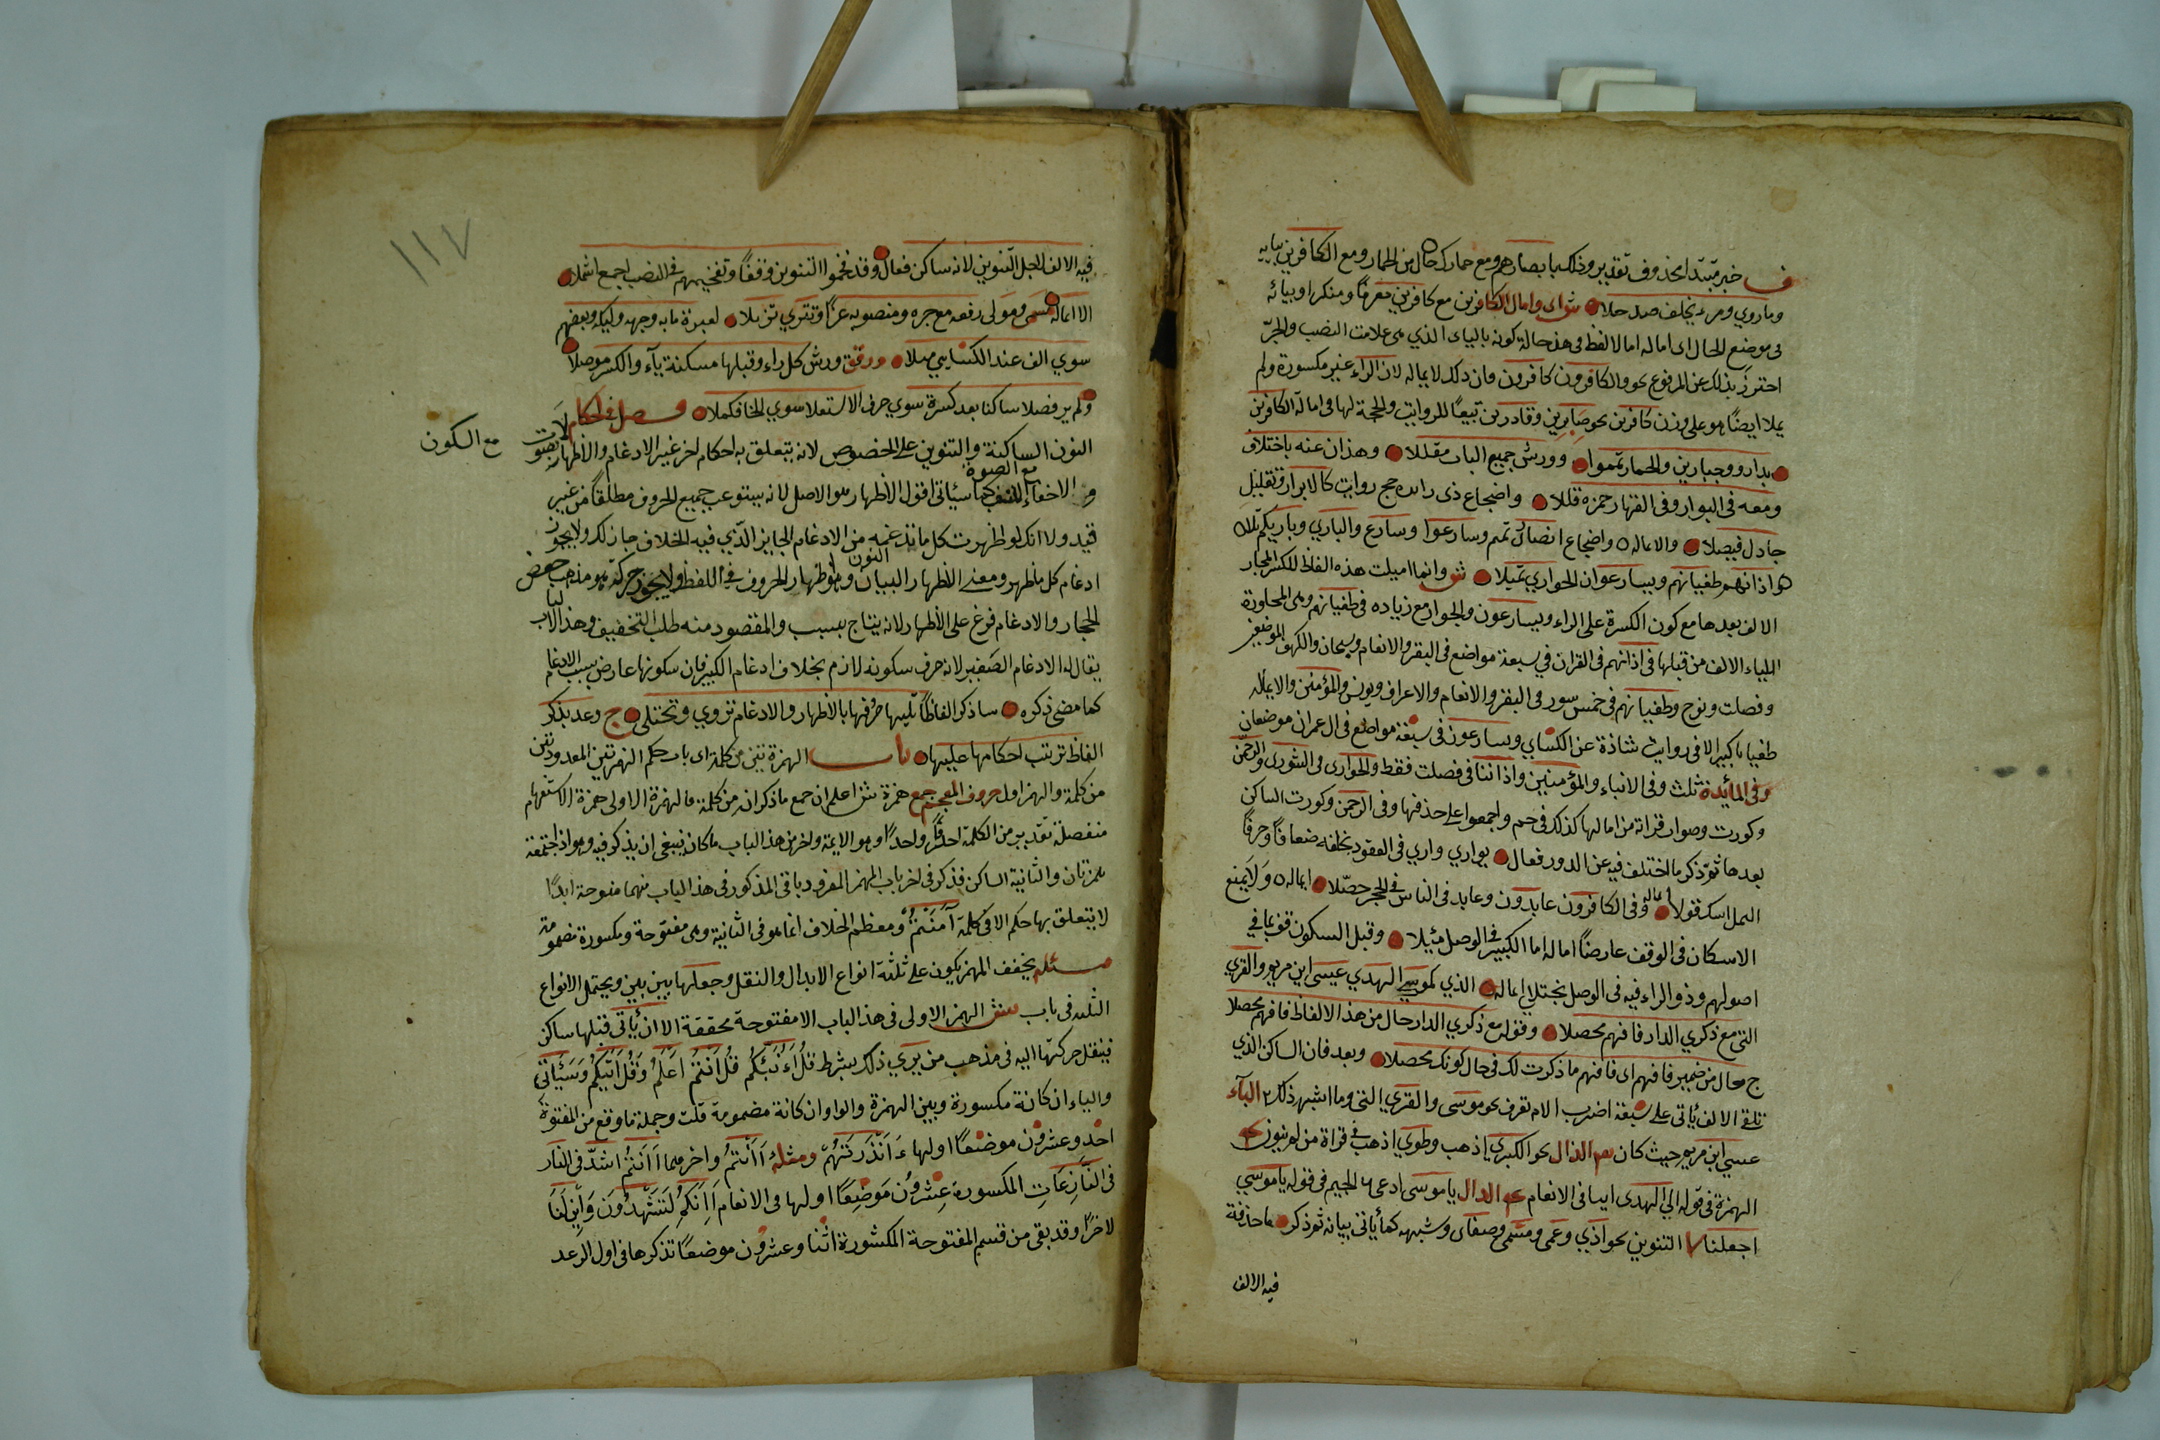 ف خبر مبتدا محذوف تقديره وذلك بابصارهم ومع حمارك حال من الحمار ومع الكافرين بيايه
وما روي ومرء بخلف صد حلا ش اى وامال الكافرين مع كافرين معرفا ومنكرا وبيائه
فى موضع الحال اى اماله اما لا لفظ فى هذ حالة كونه بالياء الذي هى علامت النصب والجر
احترز بذلك عن المرفوع نحو والكافرون كافرون فان ذلك لا يماله لان الراء غير مكسورة ولم
يملا ايضا هو على وزن كافرين نحو صابرين وقادرين تبيعا للروايت والحجة لها فى امالة الكافرين
بدار وجبارين والجار تمموا وورش جميع الباب مقللا وهذان عنه باختلاف
ومعه فى البوار وفى القهار حمزه قللا واضجاع ذى رائين حج رواية كالابرار وتقليل
جادل فيصلا والاماله واضجاع انصارى تمم وسارعوا وسارع والباري وباريكم تلا
واذانهم طغيانهم ويسارعون الحوارى تميلا ش وانما اميلت هذه الفاظ للكسر المجاز
الالف بعدها مع كون الكسرة على الراء ويسارعون والجوار مع زياده فى طغيانهم وهى المجاورة
الياء الالف من قبلها فى اذانهم فى القران في سبعة مواضع فى البقر والانعام وسبحان والكهف الموضعين
وفصلت ونوح وطغيانهم فى خمس سور فى البقر والانعام والاعراف ويونس والمؤمنين والاماله
طغيانا كبيرا لا فى روايت شاذة عن الكسايي ويسارعون فى سبعة مواضع فى ال عمران موضعان
وفى المائدة ثلث وفى الانبياء والمؤمنين واذاننا فى فصلت فقط والجوارى فى الشورى والرحمن
وكورت وصوان قراة من امالها كذلك فى حم واجمعوا على حذفها وفى الرحمن وكورت الساكن
بعدها ثم ذكر ما اختلف فيه عن الدور فعال يواري واري فى العقود بخلفه ضعافا وحرفا
النمل اتيك قولا اماله وفى الكافرون عابدون وعابد فى الناس فى الجر حصلا اماله ولا يمنع
الاسكان فى الوقف عارضا اماله اما الكسر فى الوصل ميلا وقبل السكون قف بما فى
اصولهم وذو الراء فيه فى الوصل يجتلى اماله الذي كموسى الهدي عيسى ابن مريم والقري
التى مع ذكري الدار فافهم محصلا وقول مع ذكري الدار حال من هذ الالفاظ فافهم محصلا
ج محال من ضمير فافهم اى فافهم ما ذكرت لك فى حال كونك محصلا وبعد فان الساكن الذي
تلقى الالف يأتى على سبعة اضرب الام تعرف نحو موسى والقري التى وما اشبه ذلك الباء
عيسي ابن مريم حيث كان الذال نحو الكبري اذهب وطوي اذهب فى قراة من لم ينون
الهمزة فى قوله الي الهدى ايتنا فى الانعام الدال يا موسى ادع الجيم فى قوله يا موسي
اجعلنا التنوين نحو اذي وعمى ومسمى وصفاى وشبهه كما يأتى بيانه ثم ذكر ما حذفة
فيه الالف
١١٧
فيه الالف لاجل التنوين لانه ساكن فعال وقد فخموا التنوين وقفا وتفخيمهم فى النصب اجمع اشملا
الا اماله مسمى ومولى رفعه مع جره ومنصوبه غزا وتتري تزيلا لعبرة مابه وجهه وليكه وبعضهم
سوي الف عند الكسايي ميلا ورقق ورش كل راء وقبلها مسكنة ياء والكسر موصلا
ولم ير فصلا ساكنا بعد كسرة سوي حرف الاستعلا سوي الخا فكملا فصل فى احكام
النون الساكنة والتنوين على الخصوص لانه يتعلق به احكام اخر غير الادغام والاظهار
مع السكون
و الاخفاء كما سيأتى اقول الاظهار هو الاصل لانه يستوعب جميع الحروف مطلقا من غير
مع الصوة
قيد ولا انك لو اظهرت كل ما تدغمه من الادغام الجايز الذي فيه الخلاف جاز لك ولا يجوز
ادغام كل مظهر ومعنى الاظهار البيان وهو اظهار الحروف فى اللفظ ولا يجوز حركة هو مذهب بعض
النون
الحجاز والادغام فرع على الاظهار لانه يحتاج بسبب والمقصود منه طلب التخفيف وهذ الباب
يقال له الادغام الصغير لانه حرف سكونه لازم بخلاف ادغام الكبير فان سكونها عارض بسبب الادغام
كما مضى ذكره ساذكر الفاظا تليها حروفها بالاظهار والادغام تروي وتجتلى ج وعد بذكر
الفاظ ترتب احكامها عليها باب الهمزتين من كلمة اى باب حكم الهمزتين المعدودتين
من كلمة والهمز اول حروف المعجم جمع همزة ش اعلم ان جمع ما ذكر انه من كلمة فالهمزة الاولى همزة الاستفهام
منفصلة تقديره من الكلمة احرفا واحدا وهو الايمة واخر من هذ الباب ما كان ينبغى ان يذكر فيه وهو اذا اجتمعة
همزتان والثانية الساكن فذكر فى اخر باب الهمز المفرد وباقى المذكور فى هذ الباب منهما مفتوحة ابدا
لا يتعلق بها حكم الا فى كلمة آمنتم ومعظم الخلاف انما هو فى الثانية وهى مفتوحة ومكسورة مضمومة
مسئلة تخفف الهمز يكون على ثلثة انواع الابدال والنقل وجعلها بين بين ويحتمل الانواع
الثلثه فى باب ش الهمز الاولى فى هذ الباب الا مفتوحة محققة الا ان يأتى قبلها ساكن
فينقل حركتها اليه فى مذهب من يري ذلك بشرط قل اؤنبئكم قل اانتم اعلم وقل ائنكم وسيأتى
والياء ان كانة مكسورة وبين الهمزة والواو ان كانة مضمومة قلت وجملة ما وقع من المفتوحة
احد وعشرون موضعا اولها ءانذرتهم ومثله اانتم واخر هما اانتم اشد فى النار
فى النازعات المكسورة عشرون موضعا اولها فى الانعام اانكم لتشهدون واين لنا
لاخرا وقد بقى من قسم المفتوحة المكسورة اثنا وعشرون موضعا تذكرها فى اول الرعد